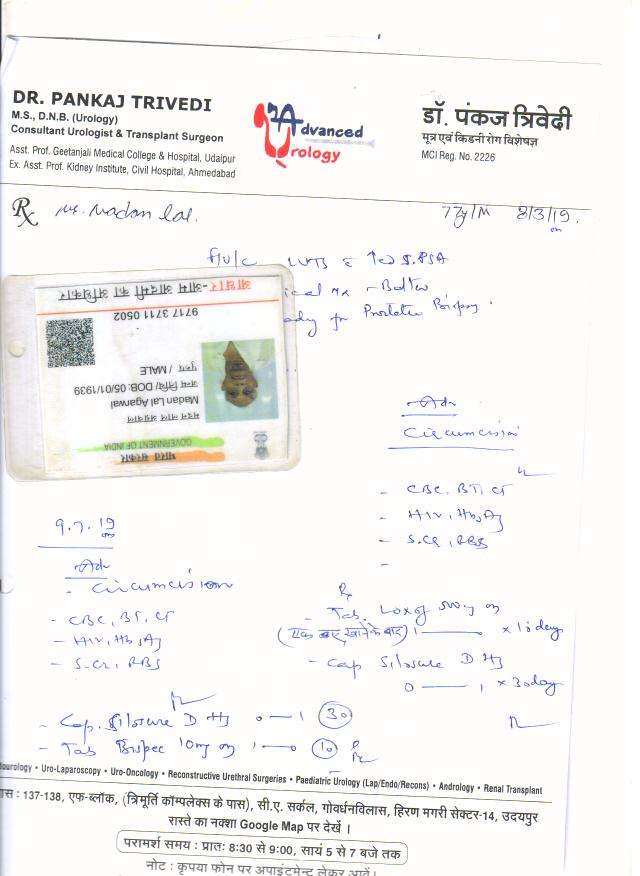 DR. PANKAJ TRIVEDI
M.S., D.N.B. (Urology)
Consultant Urologist & Transplant Surgeon
Asst. Prof. Geetanjali Medical College & Hospital, Udaipur
Ex. Asst. Prof. Kidney Institute, Civil Hospital, Ahmedabad
Advanced
Urology
डॉ. पंकज त्रिवेदी
मूत्र एवं किडनी रोग विशेषज्ञ
MCI Reg. No. 2226
Rx Mr. Madan Lal. /M 8/3/19.
LUTS S. PSA
Rx - Better
for Prostate Biopsy
आधार - आम आदमी का अधिकार
9717 3711 0502
पुरुष / MALE
जन्म तिथि / DOB: 05/01/1939
Madan Lal Agarwal
मदन लाल अग्रवाल
GOVERNMENT OF INDIA
भारत सरकार
Adv
Circumcision
- CBC, BT, CT
- HIV, HbsAg
- S.Cr, RBS
-
9.7.19
Adv
- Circumcision
- CBC, BT, CT
- HIV, HbsAg
- S.Cr, RBS
Rx
- Tab. Loxof 500mg
(एक बार खाने के बाद) 1 —— x 10 days
- Cap Silosure D
0 —— 1 x 30 days
- Cap. Silosure D 0 — 1 (30)
- Tab Bispec 10mg 1 — (10)
ourology • Uro-Laparoscopy • Uro-Oncology • Reconstructive Urethral Surgeries • Paediatric Urology (Lap/Endo/Recons) • Andrology • Renal Transplant
ास : 137-138, एफ-ब्लॉक, (त्रिमूर्ति कॉम्पलेक्स के पास), सी.ए. सर्कल, गोवर्धनविलास, हिरण मगरी सेक्टर-14, उदयपुर
रास्ते का नक्शा Google Map पर देखें ।
परामर्श समय : प्रातः 8:30 से 9:00, सायं 5 से 7 बजे तक
नोट : कृपया फोन पर अपाइंटमेन्ट लेकर आवें।